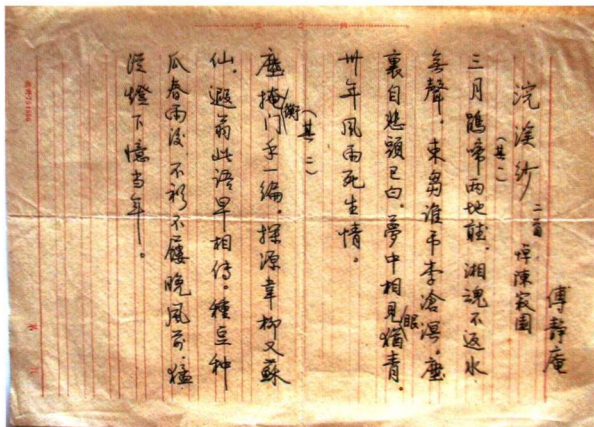 傅靜庵
浣溪紗 二首 悼陳寂園
(其一)
三月鵑啼兩地聽。湘魂不返水
無聲。束芻誰吊李滄溟。塵
裏自悲頭已白。夢中相見眼猶青。
卅年風雨死生情。
(其二)
塵掩衡门手一編。探源韋柳又蘇
仙。遐翁此語早相傳。種豆种
瓜春雨後,不衫不履晚風前。猛
從燈下憶当年。